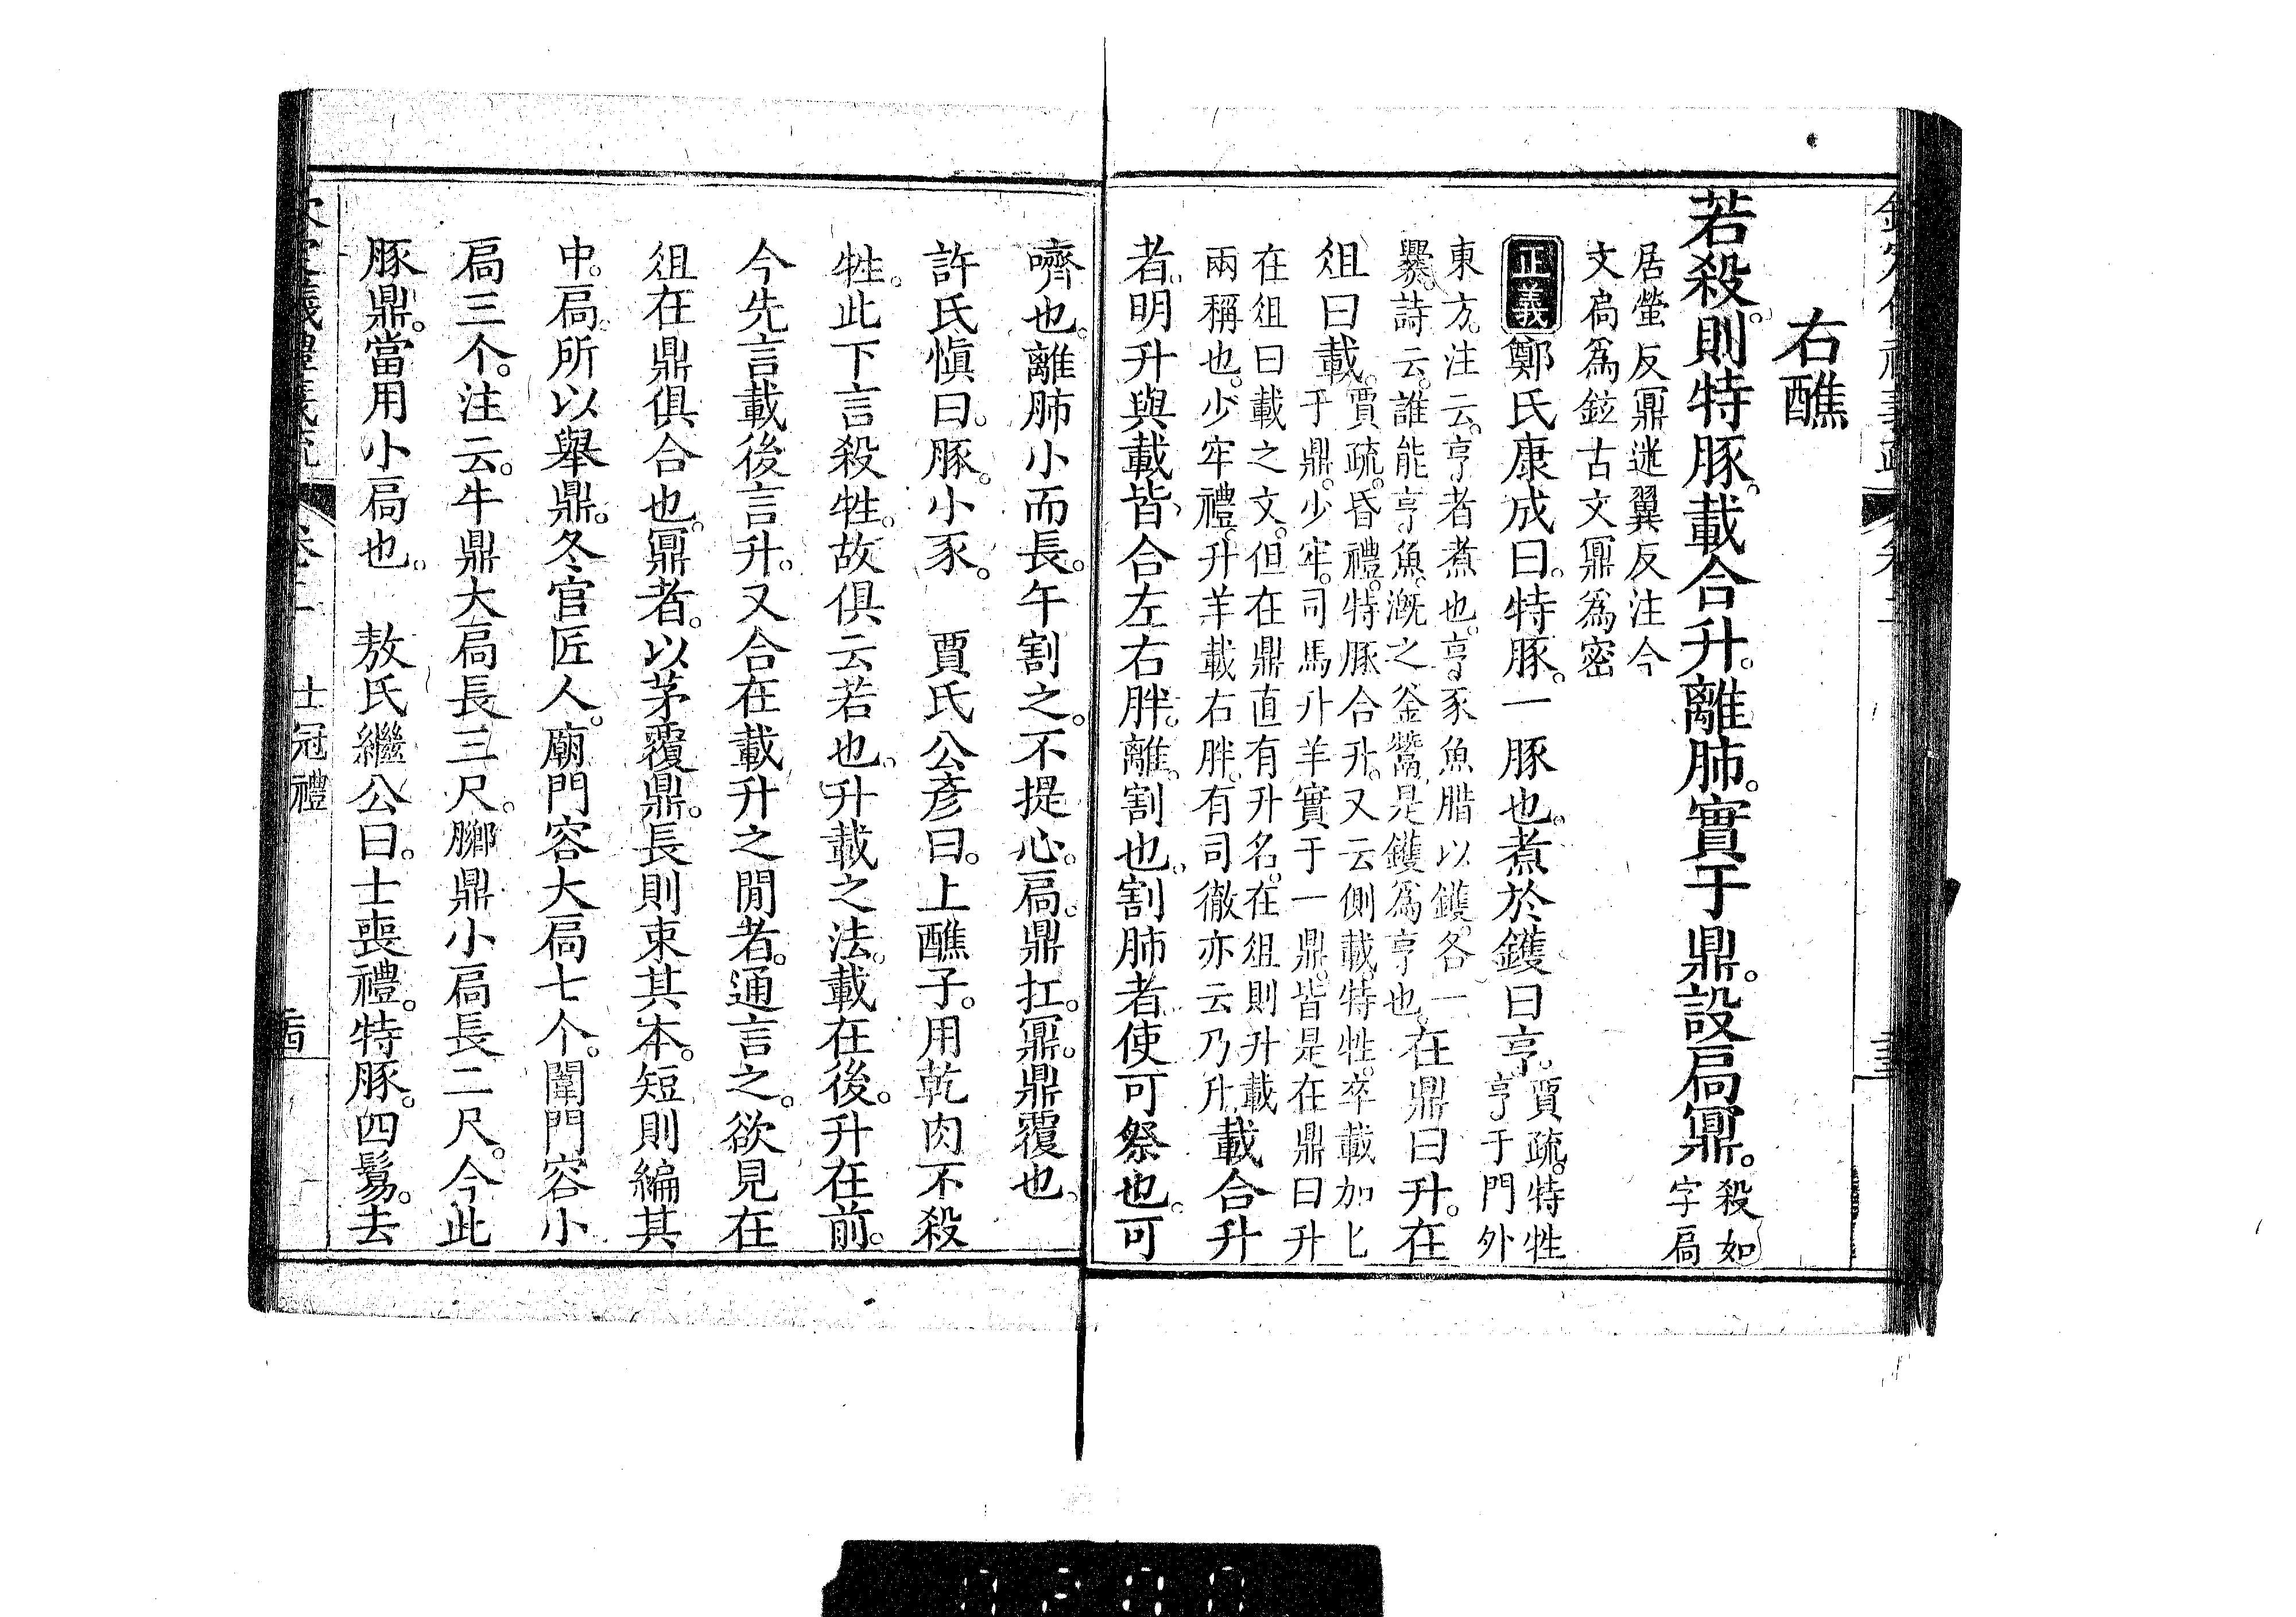 右醮
若殺。則特豚。載合升。離肺。實于鼎。設扃鼏。殺如字扃
居螢反鼏迷翼反注今
文扃爲鉉古文鼏爲密
正義鄭氏康成曰。特豚。一豚也。煮於鑊曰亨。賈疏。特牲亨于門外
東方。注云。亨者煮也。亨。豕魚腊以鑊。各一
爨。詩云。誰能亨魚。漑之釜鬵是鑊爲亨也。在鼎曰升。在
俎曰載。賈疏。昏禮。特豚合升。又云側載。特牲。卒載加匕
于鼎。少牢。司馬升羊實于一鼎。皆是在鼎曰升
在俎曰載之文。但在鼎直有升名。在俎則升載
兩稱也。少牢禮。升羊載右胖。有司徹亦云乃升。載合升
者。明升與載皆合左右胖。離。割也。割肺者。使可祭也。可
嚌也。離肺小而長。午割之。不提心。扃。鼎扛。鼏。鼎覆也。
許氏愼曰。豚。小豕。 賈氏公彥曰。上醮子。用乾肉不殺
牲。此下言殺牲。故俱云若也。升載之法。載在後。升在前。
今先言載後言升。又合在載升之閒者。通言之。欲見在
俎在鼎俱合也。鼏者。以茅覆鼎。長則束其本。短則編其
中。扃。所以舉鼎。冬官匠人。廟門容大扃七个。闈門容小
扃三个。注云。牛鼎大扃長三尺。膷鼎小扃長二尺。今此
豚鼎。當用小扃也。 敖氏繼公曰。士喪禮。特豚。四鬄。去
士冠禮